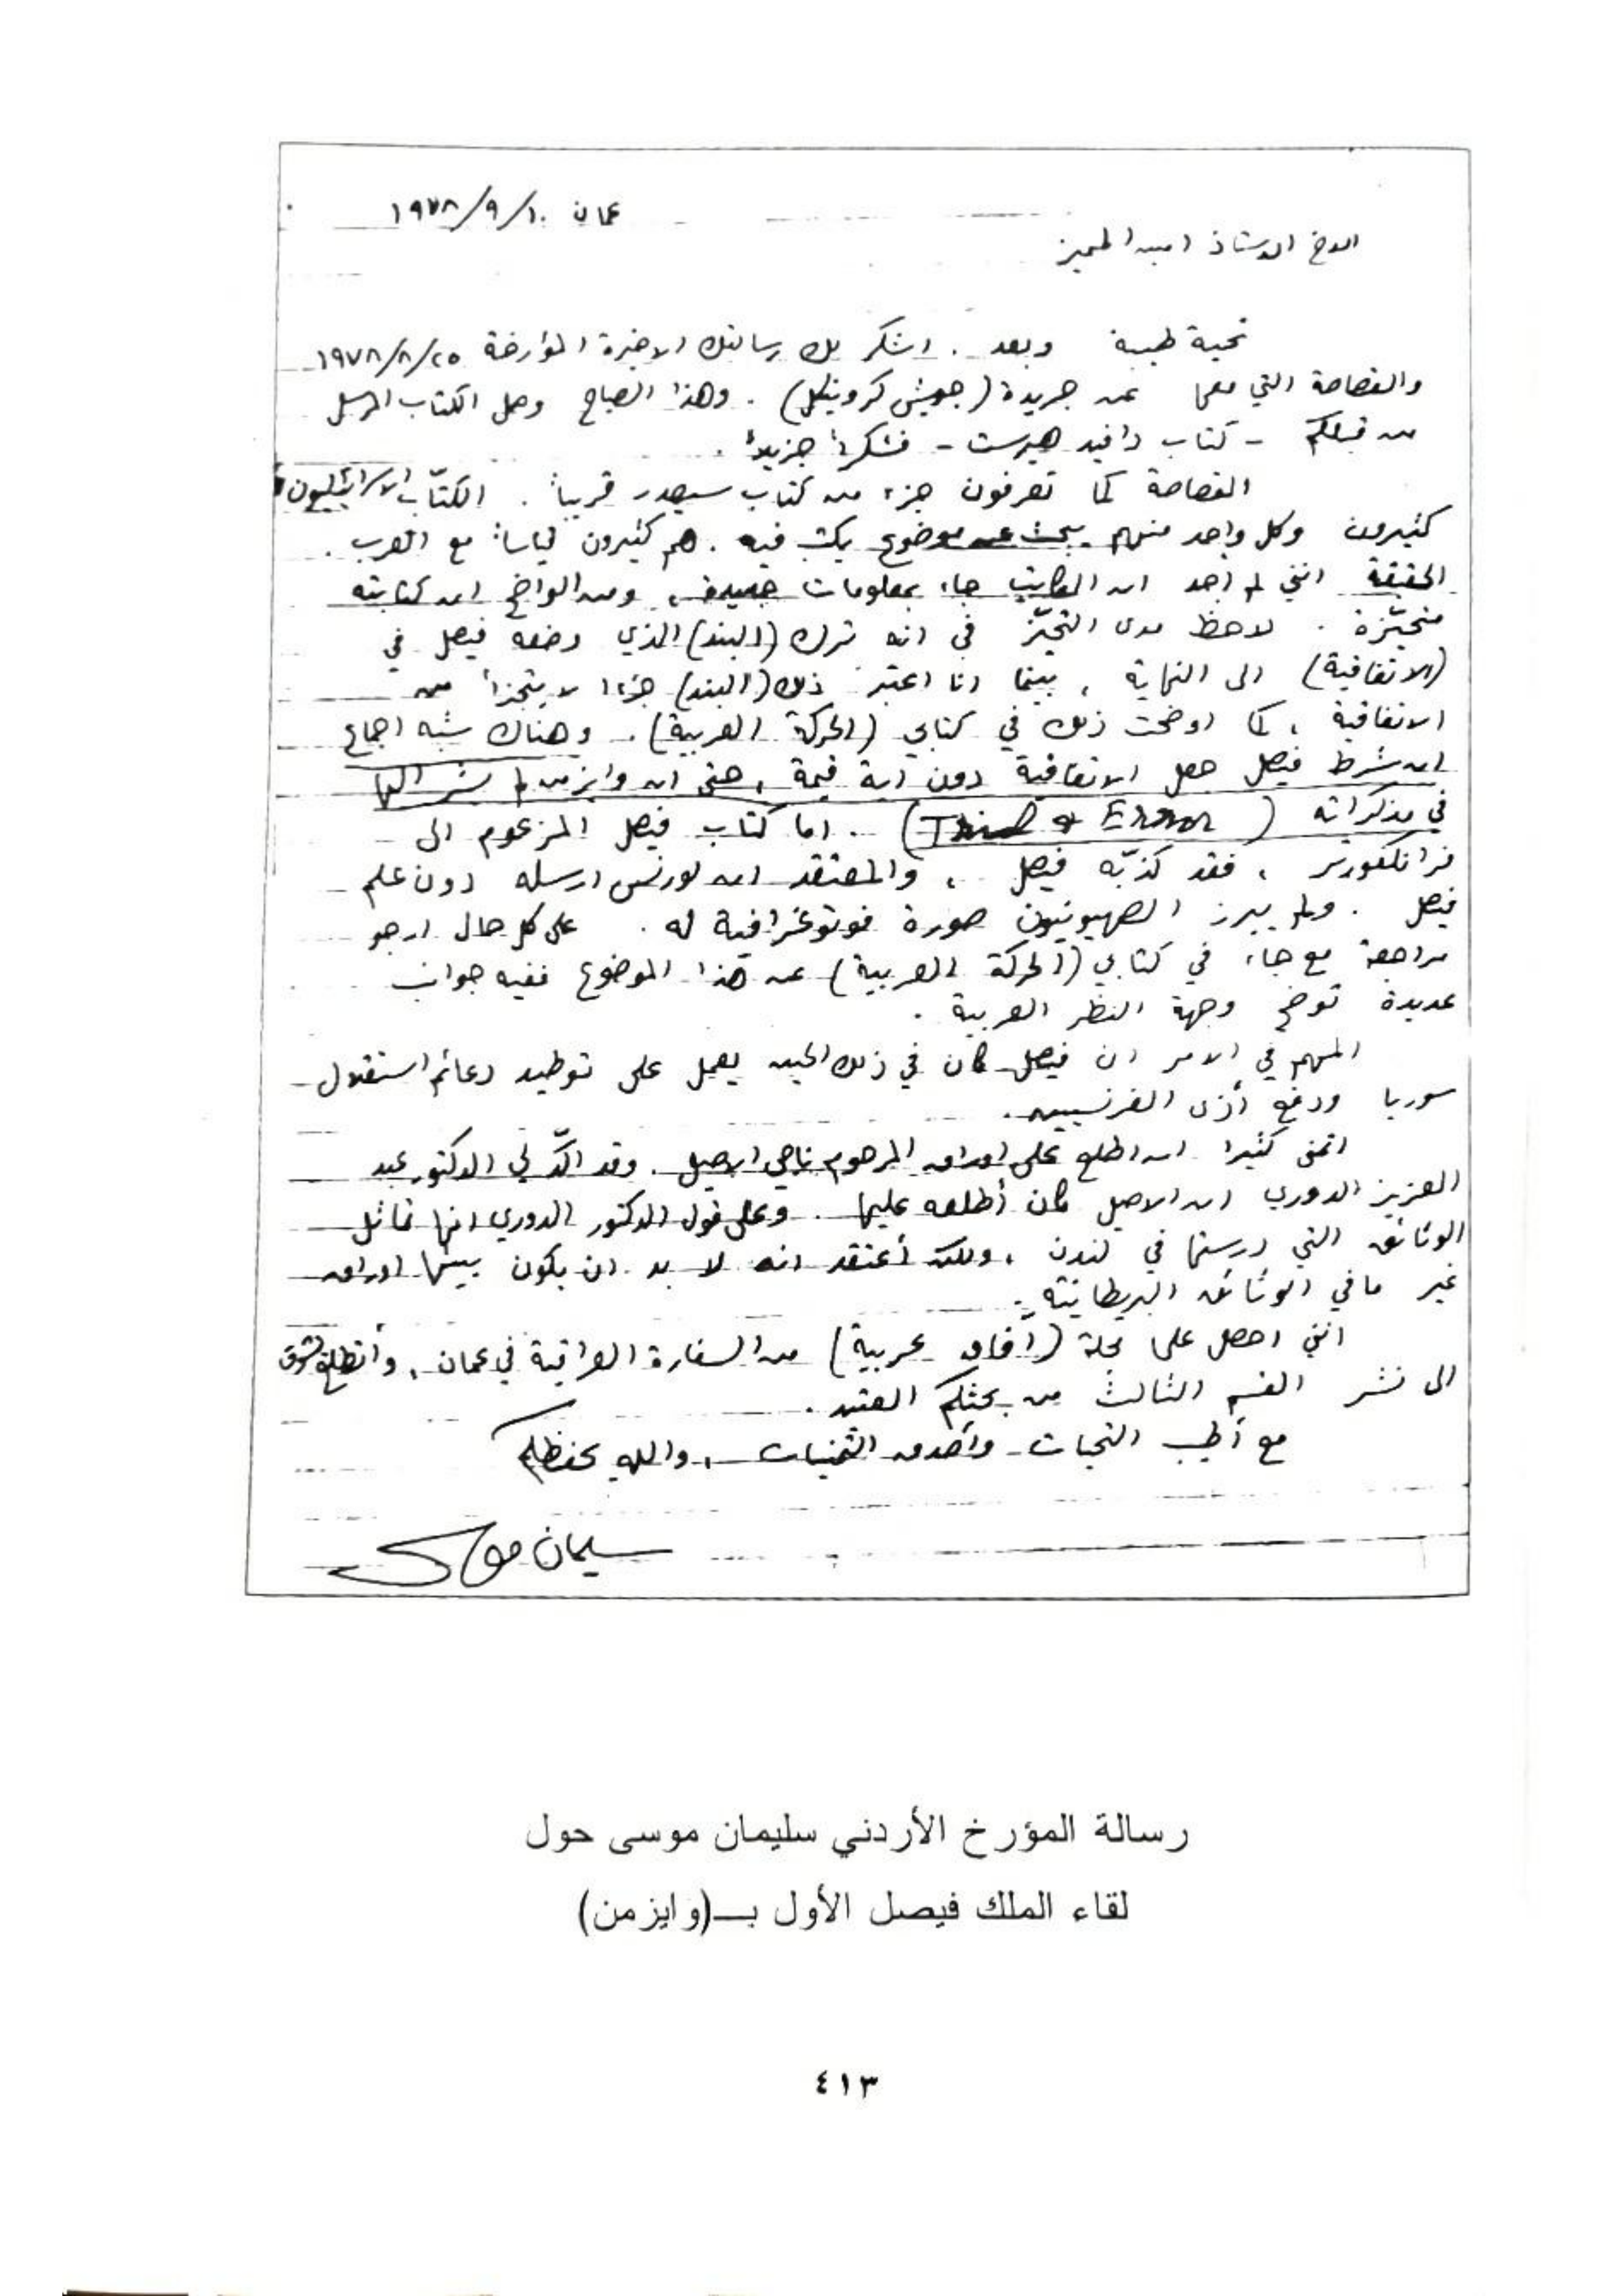 عمان ١٠/٩/١٩٧٨
الاخ الاستاذ امين المميز
تحية طيبة وبعد . اشكر لك رسالتك الاخيرة المؤرخة ١٩٧٨/٨/٢٥
والقصاصة التي معها عن جريدة (جويش كرونيكل) . وهذا الصباح وصل الكتاب المرسل
من قبلكم - كتاب دافيد هيرست - فشكراً جزيلاً .
القصاصة كما تعرفون جزء من كتاب سيصدر قريباً . الكتّاب الاسرائيليون
كثيرون وكل واحد منهم يبحث عن موضوع يكتب فيه . هم كثيرون قياساً مع العرب .
الحقيقة انني لم أجد ان الكاتب جاء بمعلومات جديدة ، ومن الواضح ان كتابته
متحيّزة . لاحظ مدى التحيّز في انه ترك (البند) الذي وضعه فيصل في
(الاتفاقية) الى النهاية ، بينما انا اعتبر ذلك (البند) جزءا لا يتجزأ من
الاتفاقية ، كما اوضحت ذلك في كتابي (الحركة العربية) . وهناك شبه اجماع
ان شرط فيصل جعل الاتفاقية دون اية قيمة ، حتى ان وايزمن لم يشر اليها
في مذكراته (Trial & Error) . اما كتاب فيصل المزعوم الى
فرانكفورتر ، فقد كذّبه فيصل ، والمعتقد ان لورنس ارسله دون علم
فيصل . ولم يبرز الصهيونيون صورة فوتوغرافية له . على كل حال ارجو
مراجعة مع جاء في كتابي (الحركة العربية) عن هذا الموضوع ففيه جوانب
عديدة توضح وجهة النظر العربية .
المهم في الامر ان فيصل كان في ذلك الحين يعمل على توطيد دعائم استقلال
سوريا ودفع أذى الفرنسيين .
اتمنى كثيرا ان اطلع على اوراق المرحوم ناجي الاصيل . وقد اكّد لي الدكتور عبد
العزيز الدوري ان الاصيل كان أطلعه عليها . وعلى قول الدكتور الدوري انها تماثل
الوثائق التي درستها في لندن ، ولكن أعتقد انه لا بد ان يكون بينها اوراق
غير ما في الوثائق البريطانية .
انني احصل على مجلة (آفاق عربية) من السفارة العراقية في عمان ، وأتطلع بشوق
الى نشر القسم الثالث من بحثكم العتيد .
مع أطيب التحيات وأصدق التمنيات ، والله يحفظكم
سليمان موسى
رسالة المؤرخ الأردني سليمان موسى حول
لقاء الملك فيصل الأول بـ(وايزمن)
٤١٣